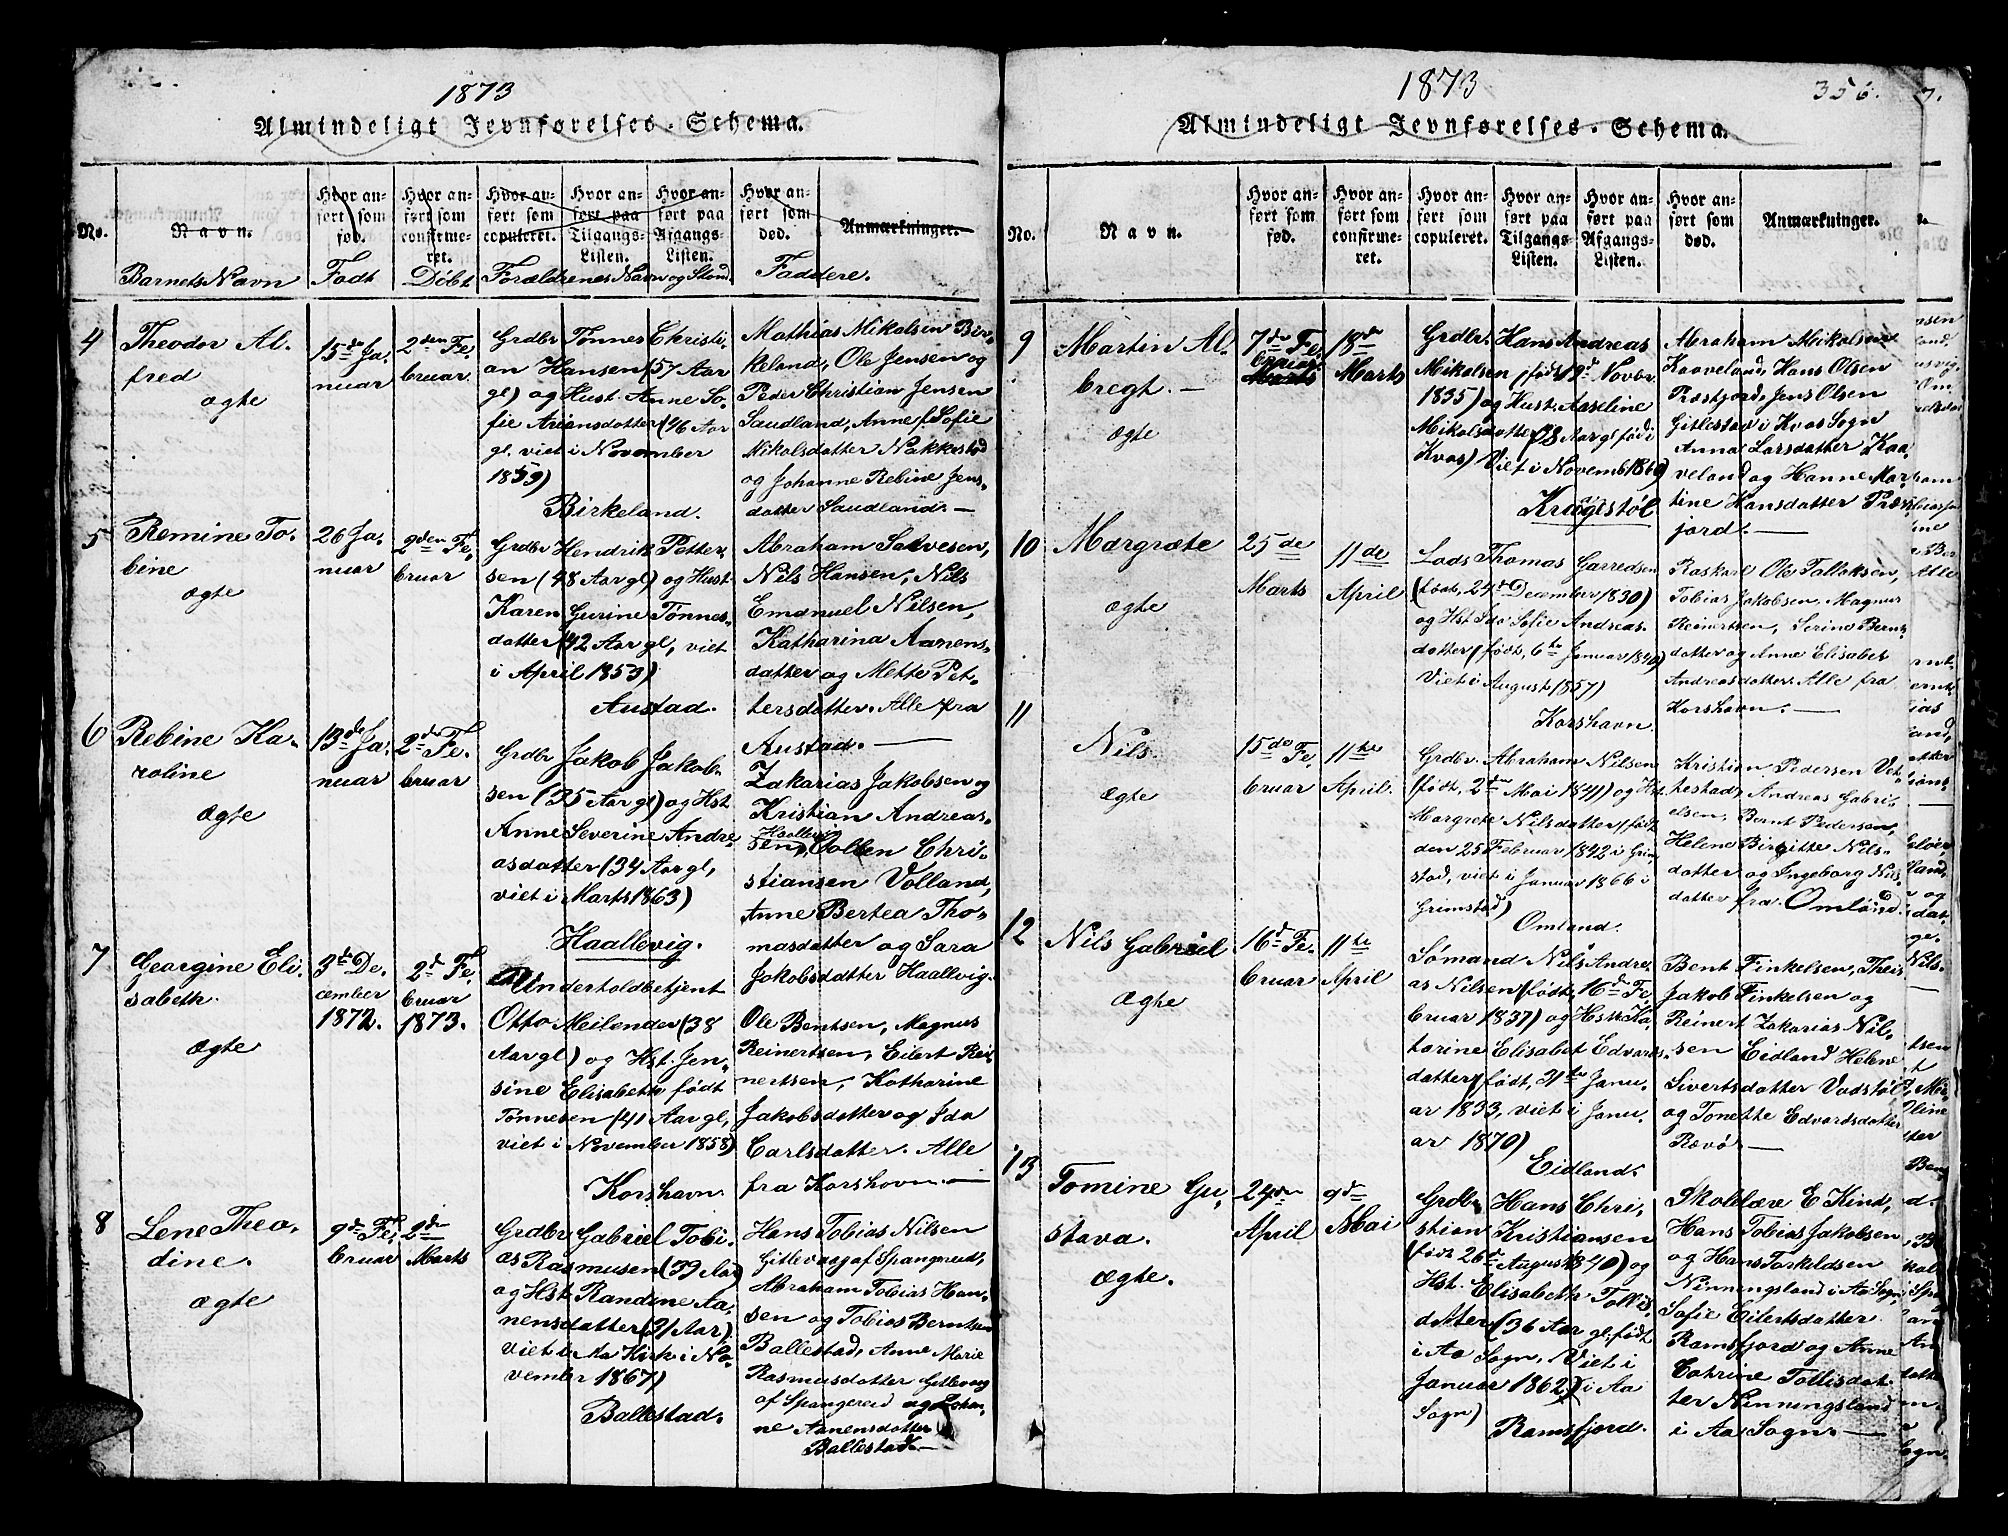 1873
Almindeligt Jevnførelses-Schema.
No.
Navn.
Hvor anført som fød.
Hvor anført som confirmeret.
Hvor anført som copuleret.
Hvor anført paa Tilgangs-Listen.
Hvor anført paa Afgangs-Listen.
Hvor anført som død.
Anmærkninger.
Barnets Navn
Født
Døbt
Forældrenes Navn og Stand
Faddere.
4
Theodor Al-
fred
ægte
15de Ja-
nuar
2den Fe-
bruar
Grdbr Tønnes Christi-
an Hansen (57 Aar
gl) og Hust. Anne So-
fie Ariansdatter (46 Aar
gl. viet i November
1859)
Birkeland.
Mathias Mikalsen Bir-
keland, Ole Jensen og
Peder Christian Jensen
Saudland, Anne Sofie
Mikolsdatter Nakkestad
og Johanne Rebine Jens-
datter Saudland. —
5
Remine To-
bine
ægte
26 Ja-
nuar
2den Fe-
bruar
Grdbr Hendrik Petter-
sen (48 Aar gl) og Hust
Karen Gurine Tønnes-
datter (42 Aar gl, viet
i April 1853)
Austad.
Abraham Salvesen,
Nils Hansen, Nils
Emanuel Nilsen,
Katharina Aanens-
datter og Mette Pet-
tersdatter. Alle fra
Austad. —
6
Rebine Ka-
roline
ægte
13de Ja-
nuar
2de Fe-
bruar
Grdbr Jakob Jakob-
sen (35 Aar gl) og Hst.
Anne Severine Andre-
asdatter (34 Aar gl,
viet i Marts 1863)
Haallevig.
Zakarias Jakobsen og
Kristian Andreas-
sen Haallevig, Collen Chri-
stiansen Volland,
Anne Bertea Tho-
masdatter og Sara
Jakobsdatter Haallvig.
7
Georgine Eli-
sabeth.
ægte
3de De-
cember
1872.
2d Fe-
bruar
1873.
Undertoldbetjent
Otto Meilender (38
Aar gl) og Hst. Jen-
sine Elisabeth født
Tønnesen (41 Aar gl,
viet i November 1858)
Korshavn
Ole Berntsen, Magnus
Reinertsen, Eilert Rei-
nertsen, Katharine
Jakobsdatter og Ida
Carlsdatter. Alle
fra Korshavn. —
8
Lene Theo-
dine.
ægte
9de Fe-
bruar
2den
Marts
Grdbr Gabriel Tobi-
as Rasmusen (39 Aar)
og Hst Randine Aa-
nensdatter (31 Aar)
viet i Aa Kirk i No-
vember 1867)
Ballestad.
Hans Tobias Nilsen
Gitlevaag af Spangreid,
Abraham Tobias Han-
sen og Tobias Berntsen
Ballestad, Anne Marie
Rasmusdatter Gitlevaag
af Spangereid og Johan-
ne Aanensdatter
Ballestad. —
1873
356.
Almindeligt Jevnførelses-Schema.
No.
Navn.
Hvor anført som fød.
Hvor anført som confirmeret.
Hvor anført som copuleret.
Hvor anført paa Tilgangs-Listen.
Hvor anført paa Afgangs-Listen.
Hvor anført som død.
Anmærkninger.
9
Martin Al-
bregt. —
ægte
7de Fe-
bruar
Marts
18de
Marts
Grdbr. Hans Andreas
Mikolsen (født 19d Novbr.
1835) og Hust. Aaseline
Mikolsdatter (28 Aar gl født i
Kvas) Viet i Novemb 1869)
Kragestøl
Abraham Mikolsen
Kaaveland, Hans Olsen
Præstjord, Jens Olsen
Gitlestad i Kvas Sogn
Anna Larsdatter Kaa-
veland og Hanne Mar-
tine Hansdatter Præst-
jord. —
10
Margrete
ægte
25de
Marts
11de
April
Lods Thomas Garredsen
(født, 24d December 1830)
og Hst Ida Sofie Andreas-
datter (født, 6te Januar 1840)
Viet i August 1857)
Korshavn.
Raskarl Ole Tollaksen,
Tobias Jakobsen, Magnus
Reinertsen, Serine Bernt-
datter og Anne Elisabet
Andreasdatter. Alle fra
Korshavn. —
11
Nils.
ægte
15de Fe-
bruar
11te
April.
Grdbr. Abraham Nilsen
(født, 2den Mai 1841) og Hst.
Margrete Nilsdatter (født
den 25 Februar 1842 i Grim-
stad, viet i Januar 1866 i
Grimstad)
Omland.
Kristian Pedersen Vet-
testad, Andreas Gabri-
elsen, Bernt Pedersen,
Helene Birgitte Nils-
datter og Ingeborg Nils-
datter fra Omland.
12
Nils Gabriel
ægte
16d Fe-
bruar
11te
April
Sømand Nils Andre-
as Nilsen (født, 16d Fe-
bruar 1837) og Hst Ka-
tarine Elisabet Edvards-
datter (født, 31te Janu-
ar 1833, viet i Janu-
ar 1870)
Eidland.
Bent Finkelsen, Theis
Jakob Finkelsen og
Reinert Zakarias Nil-
sen Eidland Helene
Sivertsdatter Vadstøl
og Tonette Edvardsdatter
Rævø. —
13
Tomine Gu-
stava.
ægte.
24de
April
9de
Mai
Grdbr Hans Chri-
stian Kristiansen
(født 26d August 1840) og
Hst. Elisabeth Tollis
datter (36 Aar gl. født
i Aa Sogn, Viet i
Januar 1862) (i Aa
Sogn)
Ramsfjord.
Skollære E Kind,
Hans Tobias Jakobsen
og Hans Torkeldsen
Ninningsland i Aa Sogn,
Sofie Eilertsdatter
Ramsfjord og Anne
Catrine Tollisdat-
ter Ninningsland
i Aa Sogn. —